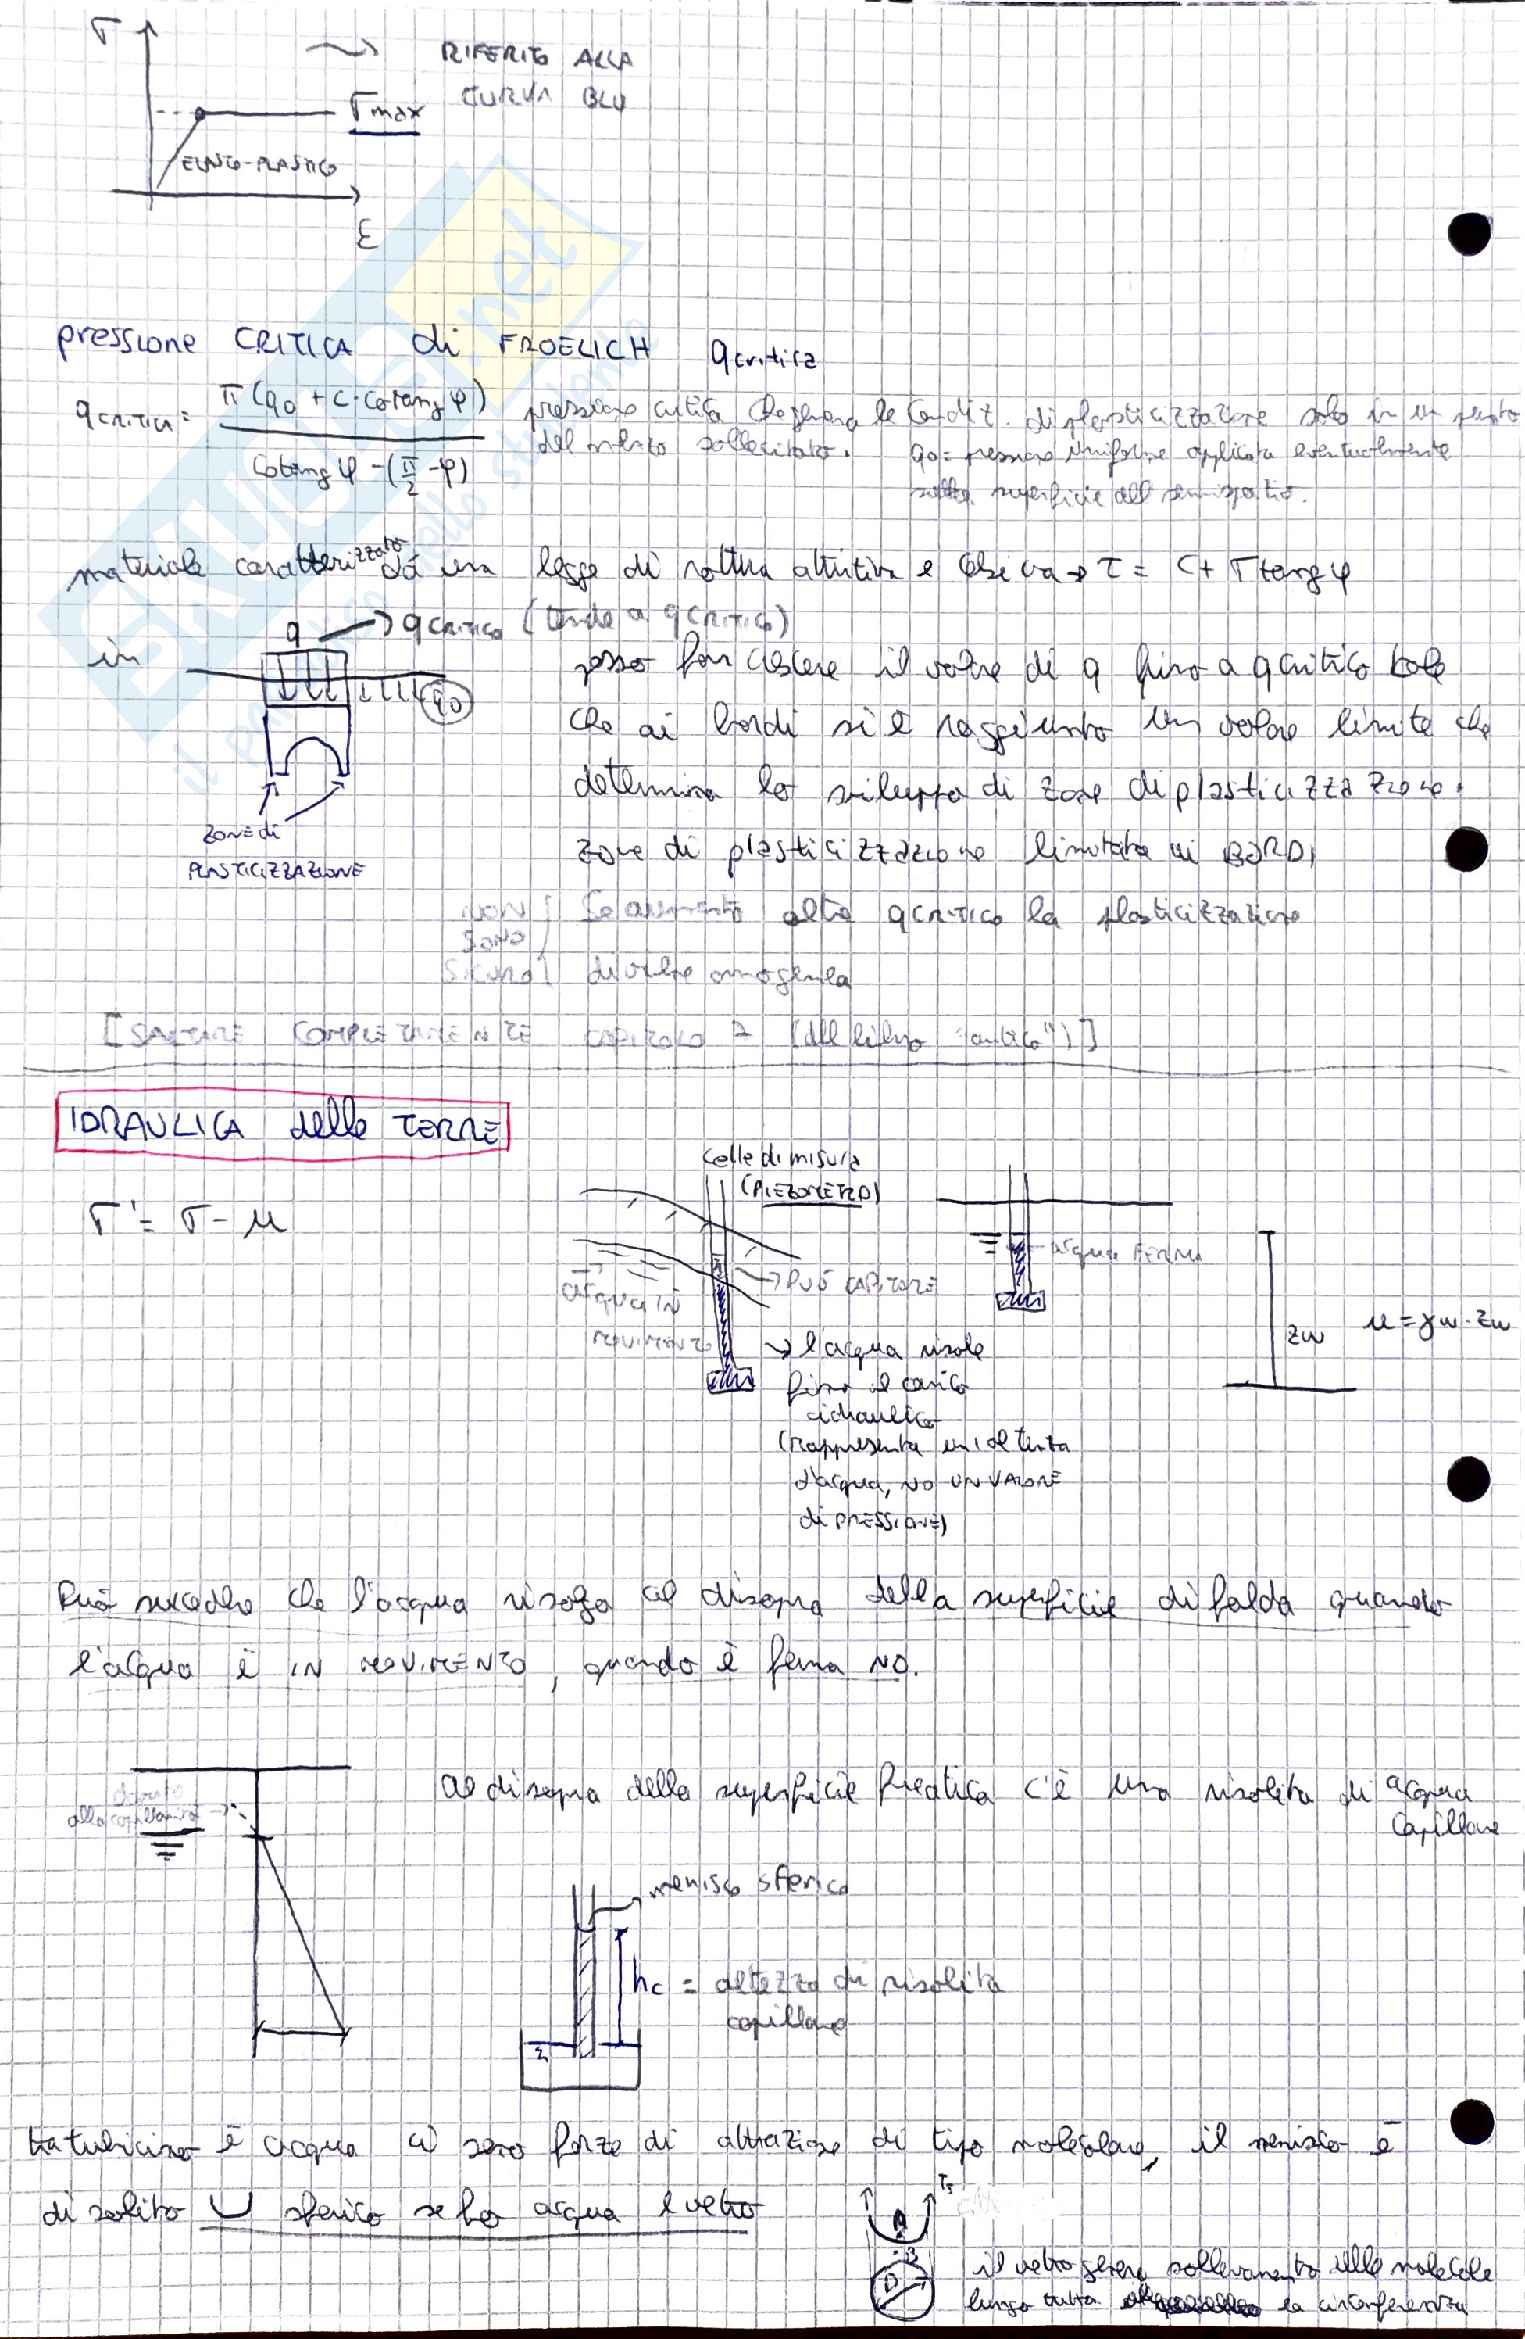 σ
RIFERITO ALLA
CURVA BLU
σmax
ELASTO-PLASTICO
ε
pressione CRITICA di FROELICH qcritica
qCRITICA = π(q0 + c·cotang φ) / cotang φ - (π/2 - φ)
pressione critica che genera le condiz. di plasticizzazione solo in un punto
del mezzo sollecitato. q0 = pressione uniforme applicata eventualmente
sulla superficie del semispazio.
materiale caratterizzato da una legge di rottura attritiva e coesiva → τ = c + σ tang φ
q → qCRITICO (tende a qCRITICO)
in
q0
posso far crescere il valore di q fino a qcritico tale
che ai bordi si è raggiunto un valore limite che
determina lo sviluppo di zone di plasticizzazione.
zone di plasticizzazione limitata ai BORDI
ZONE di
PLASTICIZZAZIONE
NON SONO SICURO
Se aumento oltre qCRITICO la plasticizzazione
diviene omogenea
[SALTARE COMPLETAMENTE CAPITOLO 7 (del libro "antico")]
IDRAULICA delle TERRE
σ' = σ - u
Celle di misura
(PIEZOMETRO)
acqua FERMA
ACQUA IN
MOVIMENTO
→ PUÒ CAPITARE
zw
u = γw · zw
→ l'acqua risale
fino al carico
idraulico
(rappresenta un'altezza
d'acqua, NO UN VALORE
di PRESSIONE)
Può succedere che l'acqua risalga al disopra della superficie di falda quando
l'acqua è IN MOVIMENTO, quando è ferma NO.
dovuto
alla capillarità
al disopra della superficie freatica c'è una risalita di acqua
capillare
menisco sferico
hc = altezza di risalita
capillare
tra tubicino e acqua ci sono forze di attrazione di tipo molecolare, il menisco è
di solito ∪ sferico se ho acqua e vetro
Ts
A
B
D
il vetro genera sollevamento delle molecole
lungo tutta la circonferenza
il p